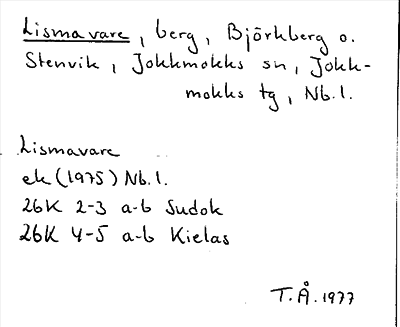 Lismavare, berg, Björkberg o.
Stenvik, Jokkmokks sn, Jokk-
mokks tg, Nb.l.
Lismavare
ek (1975) Nb.l.
26K 2-3 a-b Sudok
26K 4-5 a-b Kielas
T.Å. 1977